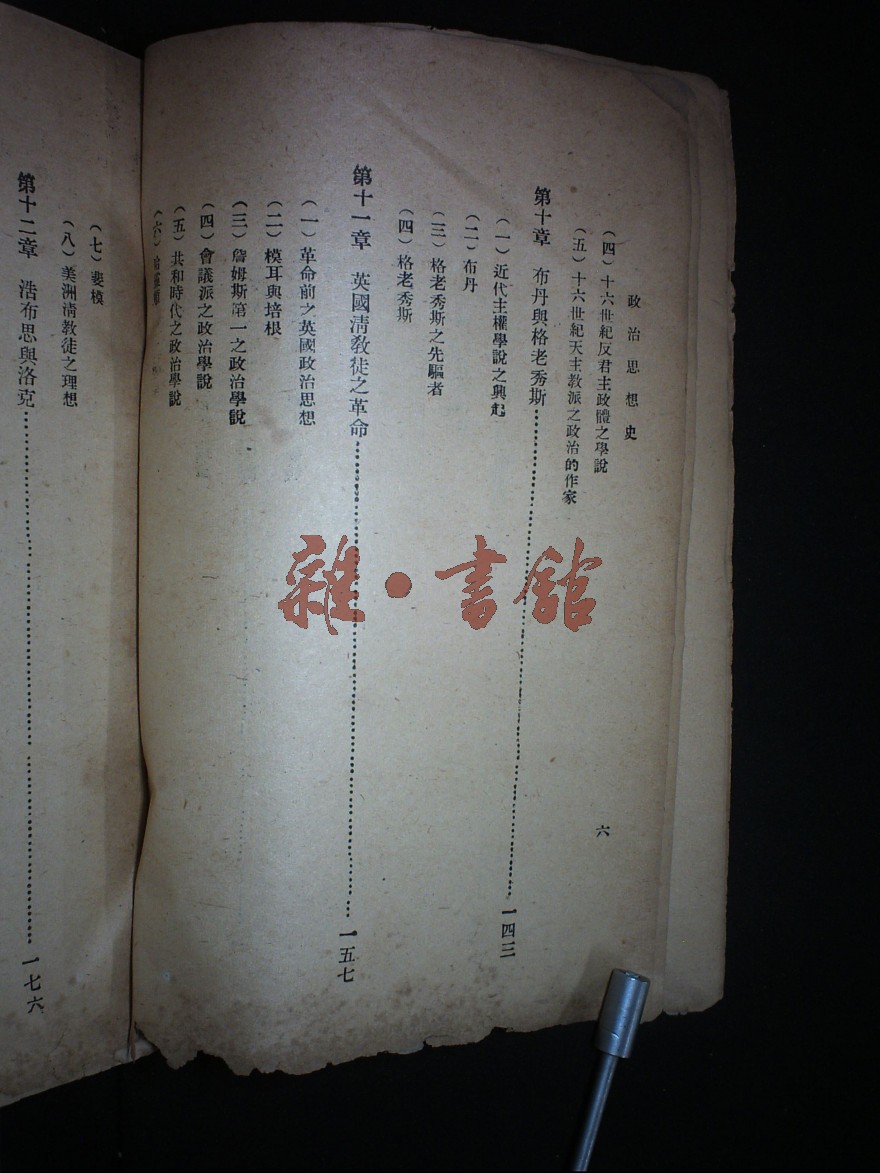 政治思想史
六
(四)十六世紀反君主政體之學說
(五)十六世紀天主教派之政治的作家
第十章 布丹與格老秀斯…………一四三
(一)近代主權學說之興起
(二)布丹
(三)格老秀斯之先驅者
(四)格老秀斯
第十一章 英國淸敎徒之革命…………一五七
(一)革命前之英國政治思想
(二)模耳與培根
(三)詹姆斯第一之政治學說
(四)會議派之政治學說
(五)共和時代之政治學說
(六)
(七)斐模
(八)美洲淸教徒之理想
第十二章 浩布思與洛克…………一七六
雜·書館